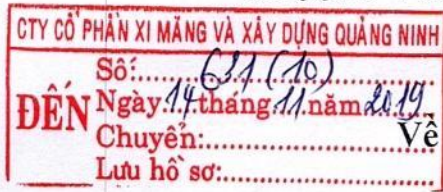 CTY CỔ PHẦN XI MĂNG VÀ XÂY DỰNG QUẢNG NINH
Số: 631 (10)
ĐẾN Ngày 14 tháng 11 năm 2019
Chuyển: Về
Lưu hồ sơ: